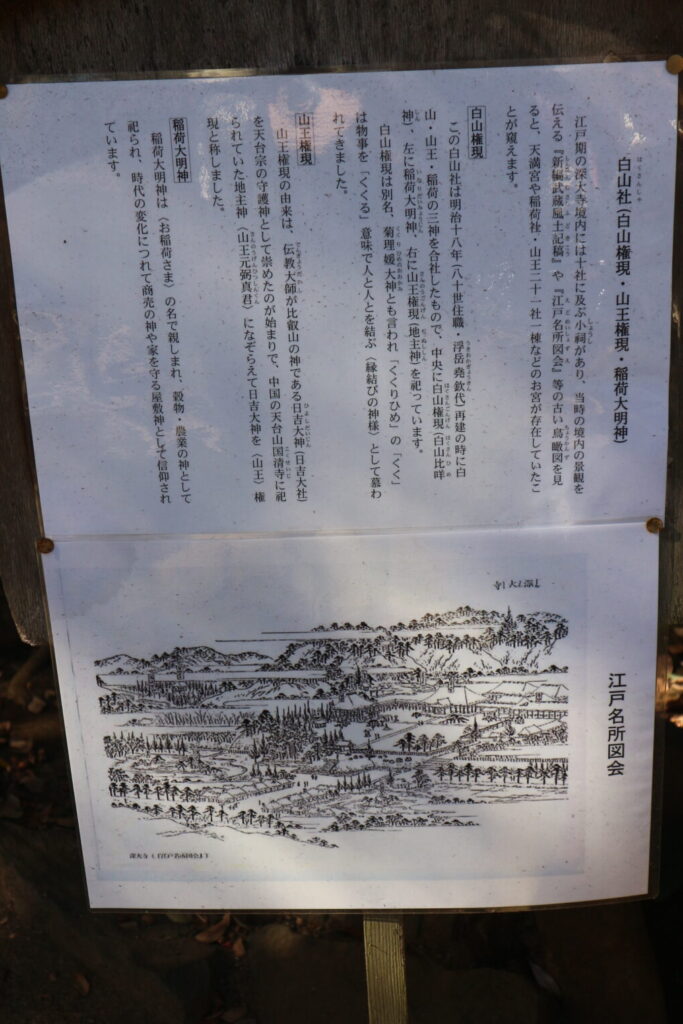 白山社(白山権現・山王権現・稲荷大明神)
江戸期の深大寺境内には十社に及ぶ小祠があり、当時の境内の景観を
伝える『新編武蔵風土記稿』や『江戸名所図会』等の古い鳥瞰図を見
ると、天満宮や稲荷社・山王二十一社一棟などのお宮が存在していたこ
とが窺えます。
白山権現
この白山社は明治十八年(八十世住職・浮岳堯欽代)再建の時に白
山・山王・稲荷の三神を合社したもので、中央に白山権現(白山比咩
神)、左に稲荷大明神、右に山王権現(地主神)を祀っています。
白山権現は別名、菊理媛大神とも言われ「くくりひめ」の「くく」
は物事を「くくる」意味で人と人とを結ぶ〈縁結びの神様〉として慕わ
れてきました。
山王権現
山王権現の由来は、伝教大師が比叡山の神である日吉大神(日吉大社)
を天台宗の守護神として崇めたのが始まりで、中国の天台山国清寺に祀
られていた地主神(山王元弼真君)になぞらえて日吉大神を〈山王〉権
現と称しました。
稲荷大明神
稲荷大明神は〈お稲荷さま〉の名で親しまれ、穀物・農業の神として
祀られ、時代の変化につれて商売の神や家を守る屋敷神として信仰され
ています。
江戸名所図会